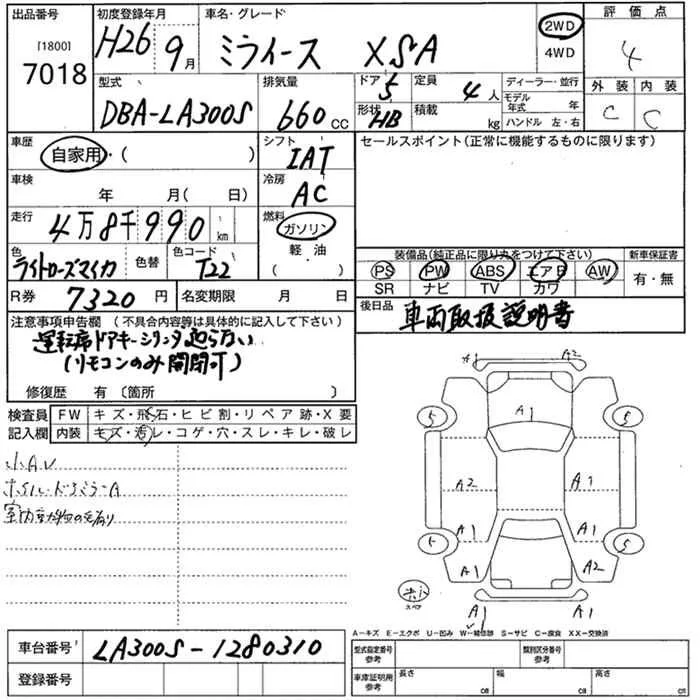 出品番号 初度登録年月 車名・グレード 評価点
[1800] 7018 H26 9月 ミライース XSA 2WD 4WD 4
型式 排気量 ドア 5 定員 4人 ディーラー・並行 外装 内装
DBA-LA300S 660cc 形状 HB 積載 kg モデル年式 年 C C
ハンドル 左・右
車歴 自家用・( ) シフト IAT セールスポイント(正常に機能するものに限ります)
車検 年 月( 日) 冷房 AC
走行 4万8千990km 燃料 ガソリン
軽・油
( )
色 ライトローズマイカ 色替 色コード T22
装備品(純正品に限り丸をつけて下さい) 新車保証書
PS PW ABS エアB AW 有・無
SR ナビ TV カワ
R券 7320円 名変期限 月 日 後日品 車両取扱説明書
注意事項申告欄(不具合内容等は具体的に記入して下さい)
運転席ドアキーシリンダ 回らない
(リモコンのみ開閉可)
修復歴 有〔箇所 〕
検査員 FW キズ・飛石・ヒビ割・リペア跡・X要
記入欄 内装 キズ・汚レ・コゲ・穴・スレ・キレ・破レ
小AU
ホイル・ドアミラーA
A1 A2
A1
5 5
A2 A1
A1 A1
5 5
A1 A2
スペア
A1 A1
A-キズ E-エクボ U-凹み W-補修跡 S-サビ C-腐食 XX-交換済
車台番号 LA300S-1280310 型式指定番号 参考 類別区分番号 参考
登録番号 車庫証明用 参考 長さ cm 幅 cm 高さ cm